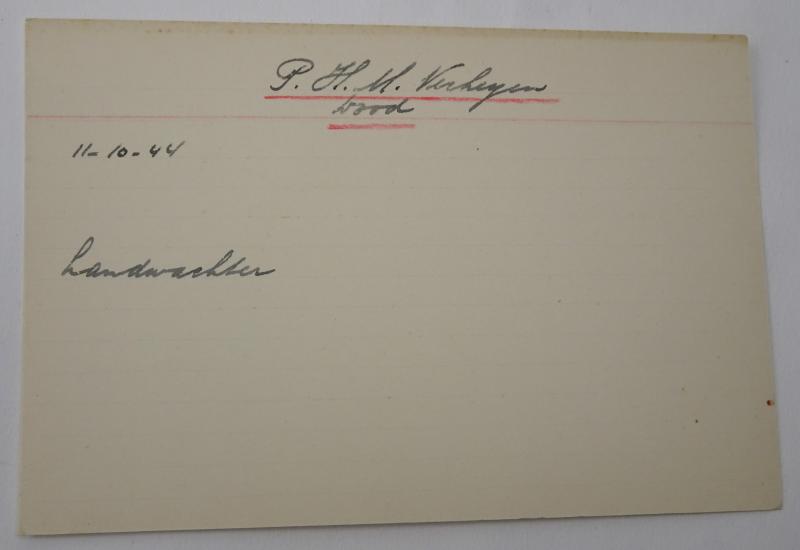 P. H. M. Verheyen
dood
11-10-44
Landwachter